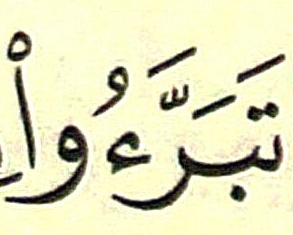 تَبَرَّءُوا۟